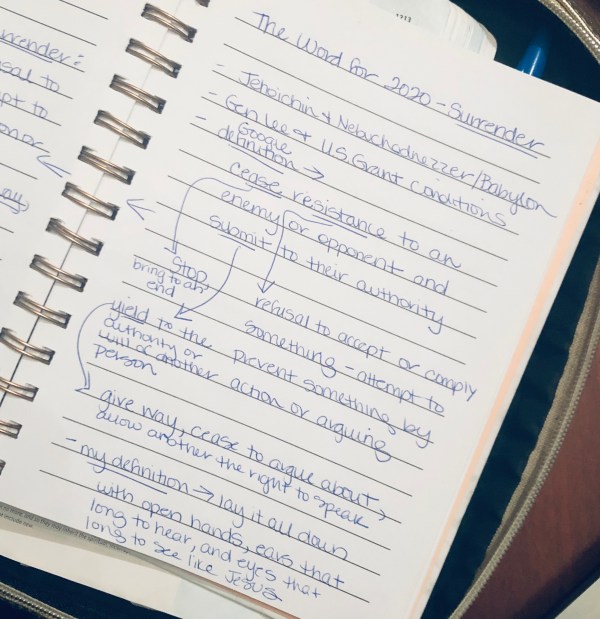 urrender:
usal to
pt to
on or
way,
The Word for 2020 - Surrender
- Jehoichin & Nebuchadnezzer/Babylon
- Gen Lee & U.S. Grant conditions
- Google
definition →
cease resistance to an
enemy or opponent and
submit to their authority
STOP
bring to an
end
refusal to accept or comply
something - attempt to
prevent something by
action or arguing
yield to the
authority or
will of another
person
give way, cease to argue about
allow another the right to speak
- my definition → lay it all down
with open hands, ears that
long to hear, and eyes that
long to see like Jesus